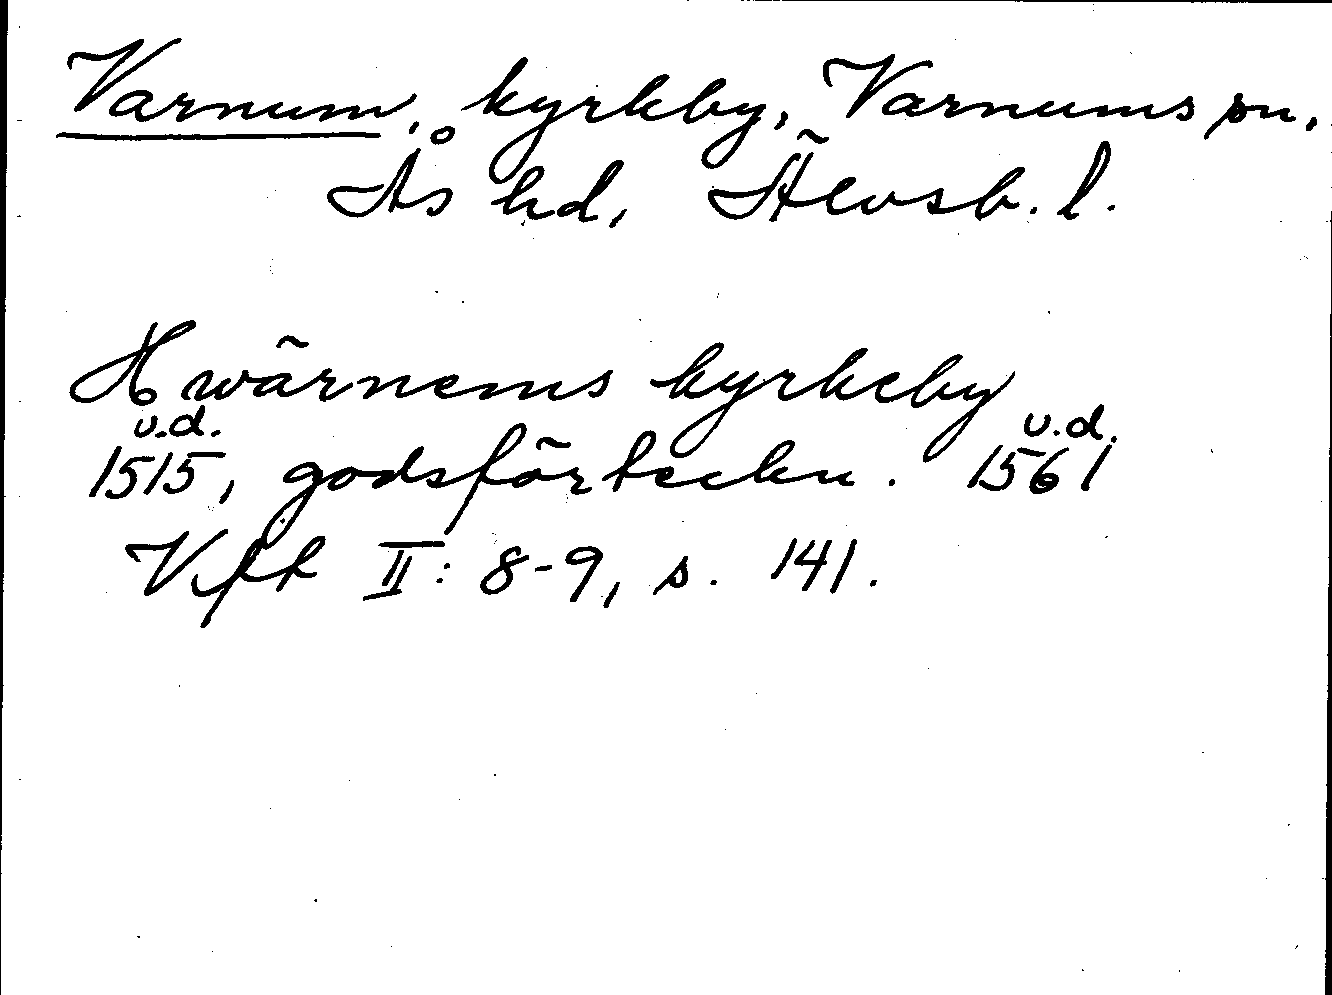 Varnum, kyrkby, Varnums sn,
Ås hd, Älvsb. l.
Hwärnems kyrkeby
u.d. u.d.
1515, godsförteckn. 1561
Vfft II: 8-9, s. 141.